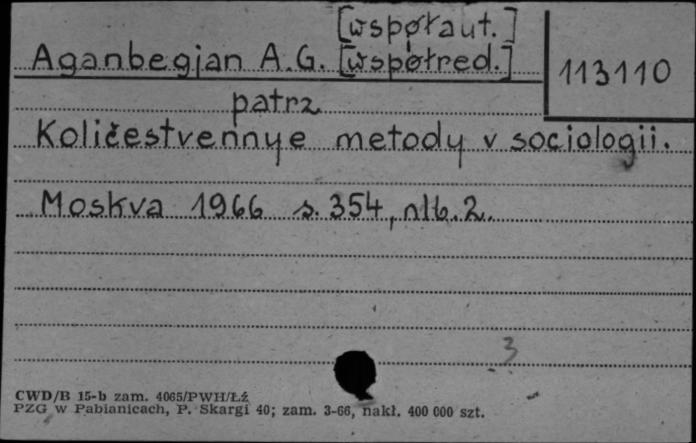 [współaut.]
Aganbegjan A.G. [współred.]
113110
patrz
Količestvennye metody v sociologii.
Moskva 1966 s. 354, nlb. 2.
3
CWD/B 15-b zam. 4065/PWH/Łź
PZG w Pabianicach, P. Skargi 40; zam. 3-66, nakł. 400 000 szt.